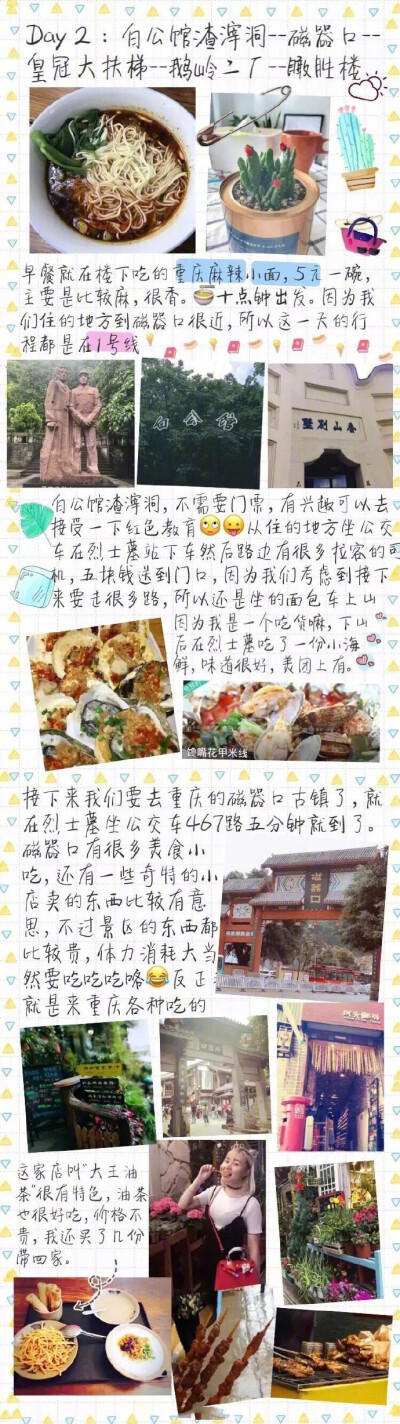 Day 2：白公馆渣滓洞--磁器口--
皇冠大扶梯--鹅岭二厂--瞰胜楼
早餐就在楼下吃的重庆麻辣小面，5元一碗，
主要是比较麻，很香。十点钟出发。因为我
们住的地方到磁器口很近，所以这一天的行
程都是在1号线
白公馆
香山别墅
白公馆渣滓洞，不需要门票，有兴趣可以去
接受一下红色教育🙄😛从住的地方坐公交
车在烈士墓站下车然后路边有很多拉客的司
机，五块钱送到门口，因为我们考虑到接下
来要走很多路，所以还是坐的面包车上山
因为我是一个吃货嘛，下山
后在烈士墓吃了一份小海
鲜，味道很好，美团上有。
馋嘴花甲米线
接下来我们要去重庆的磁器口古镇了，就
在烈士墓坐公交车467路五分钟就到了。
磁器口有很多美食小
吃，还有一些奇特的小
店卖的东西比较有意
思，不过景区的东西都
比较贵，体力消耗大当
然要吃吃吃咯😂反正
就是来重庆各种吃的
磁器口
这家店叫“大王油
茶”很有特色，油茶
也很好吃，价格不
贵，我还买了几份
带回家。